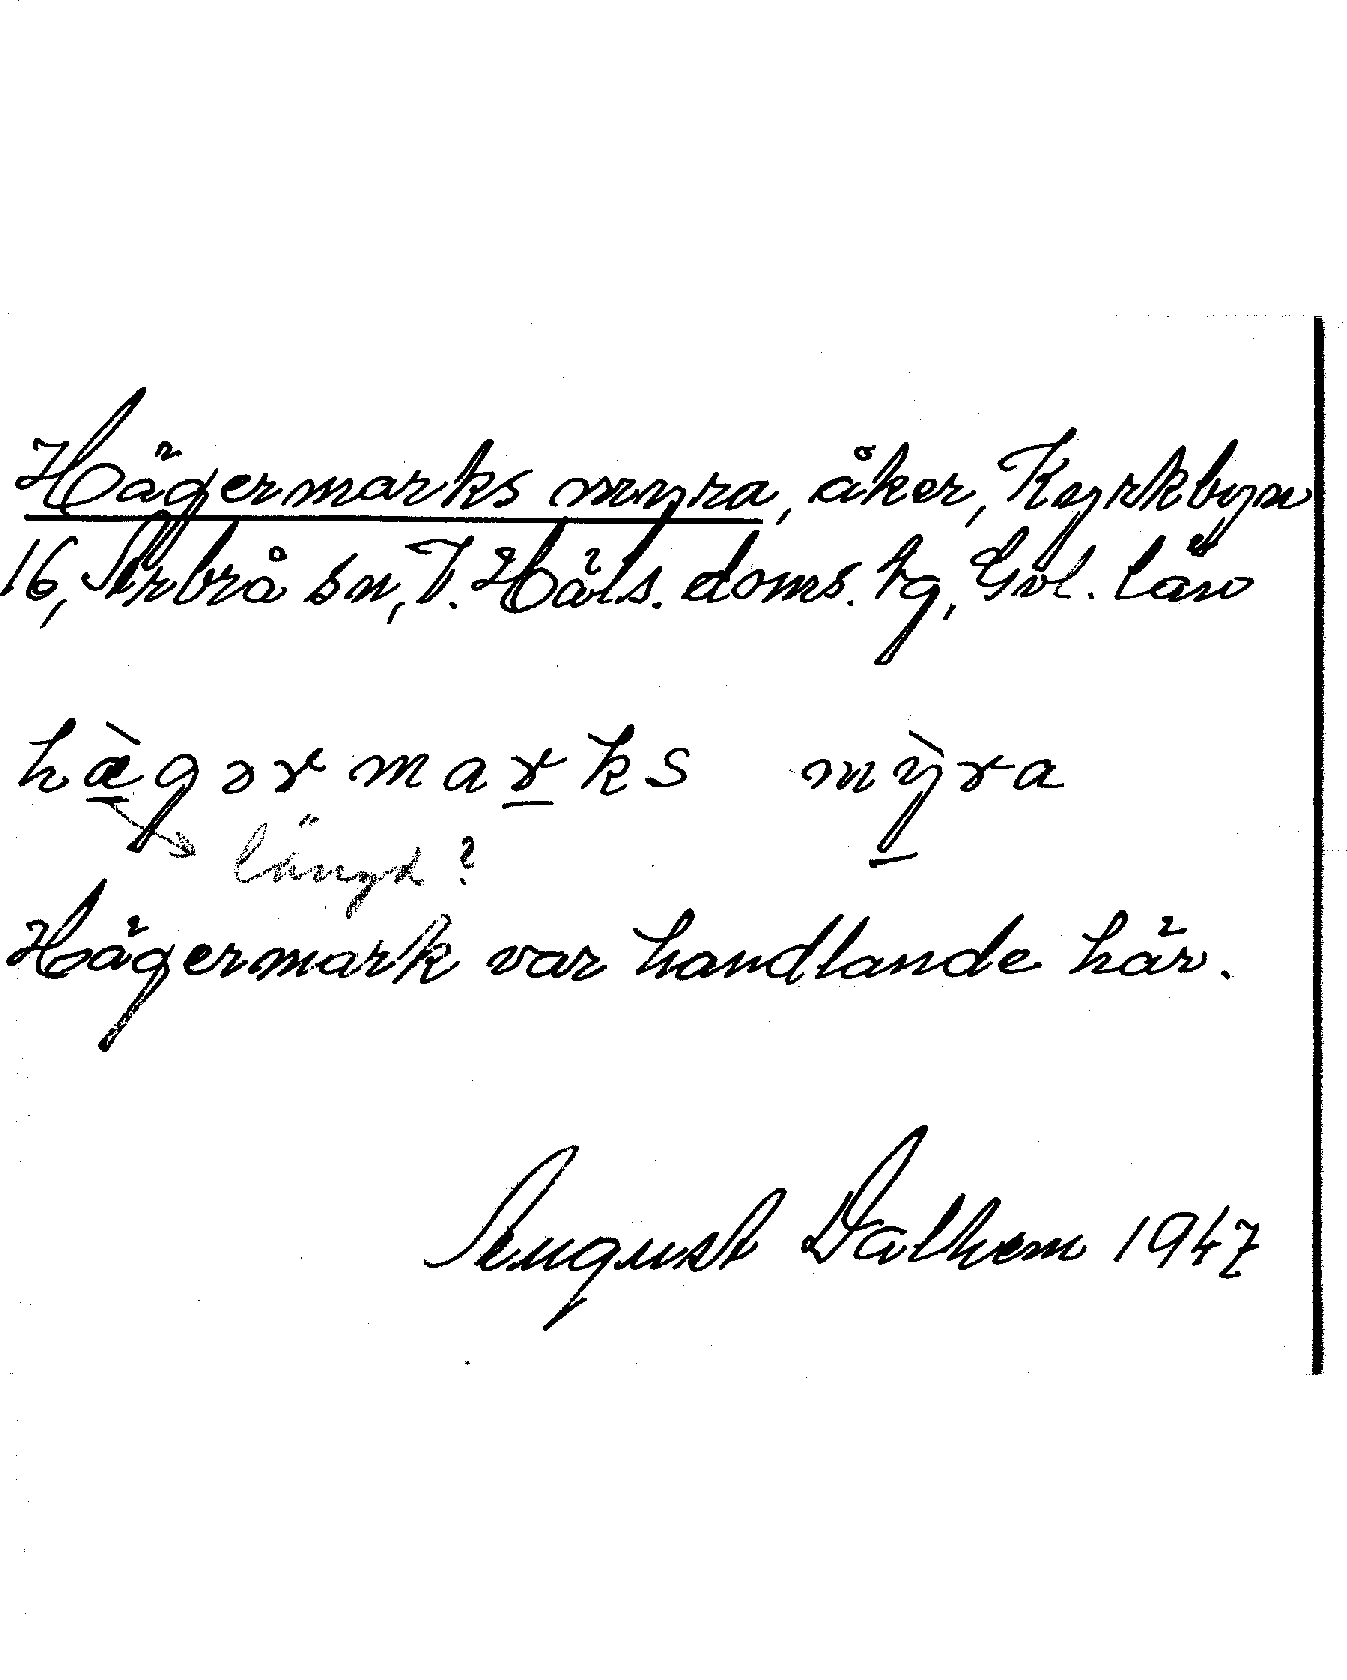 Hägermarks myra, åker, Kyrkbyn
16, Arbrå sn, V. Häls. doms. hg, Gvl. län
hæ̀gərmarks mỳra
längd?
Hägermark var handlande här.
August Dalhem 1947